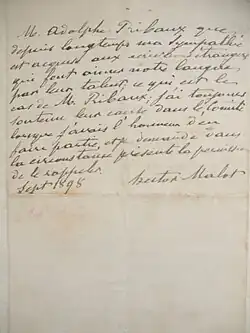 M. Adolphe Ribaux que
depuis longtemps ma sympathie
est acquise aux écrivains étrangers
qui font aimer notre langue
par leur talent, ce qui est le
cas de M. Ribaux, j'ai toujours
soutenu leur cause dans le Comité
lorsque j'avais l'honneur d'en
faire partie, et je demande dans
la circonstance présente la permission
de le rappeler
Sept 1898 Hector Malot